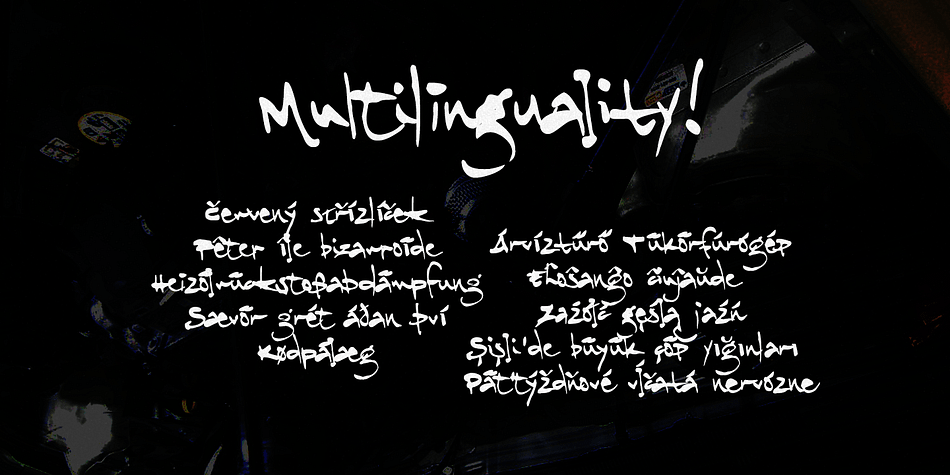 Multilinguality!
červený střízlíček
Pêter ije bizarroïde
Heizölrückstoßabdämpfung
Sævör grét áðan því
Kødpålæg
Árvíztűrő tükörfúrógép
Eĥoŝanĝo ĉiuĵaŭde
Zażółć gęślą jaźń
Şişli'de büyük çöp yığınları
Päťtýždňové vĺčatá nervózne